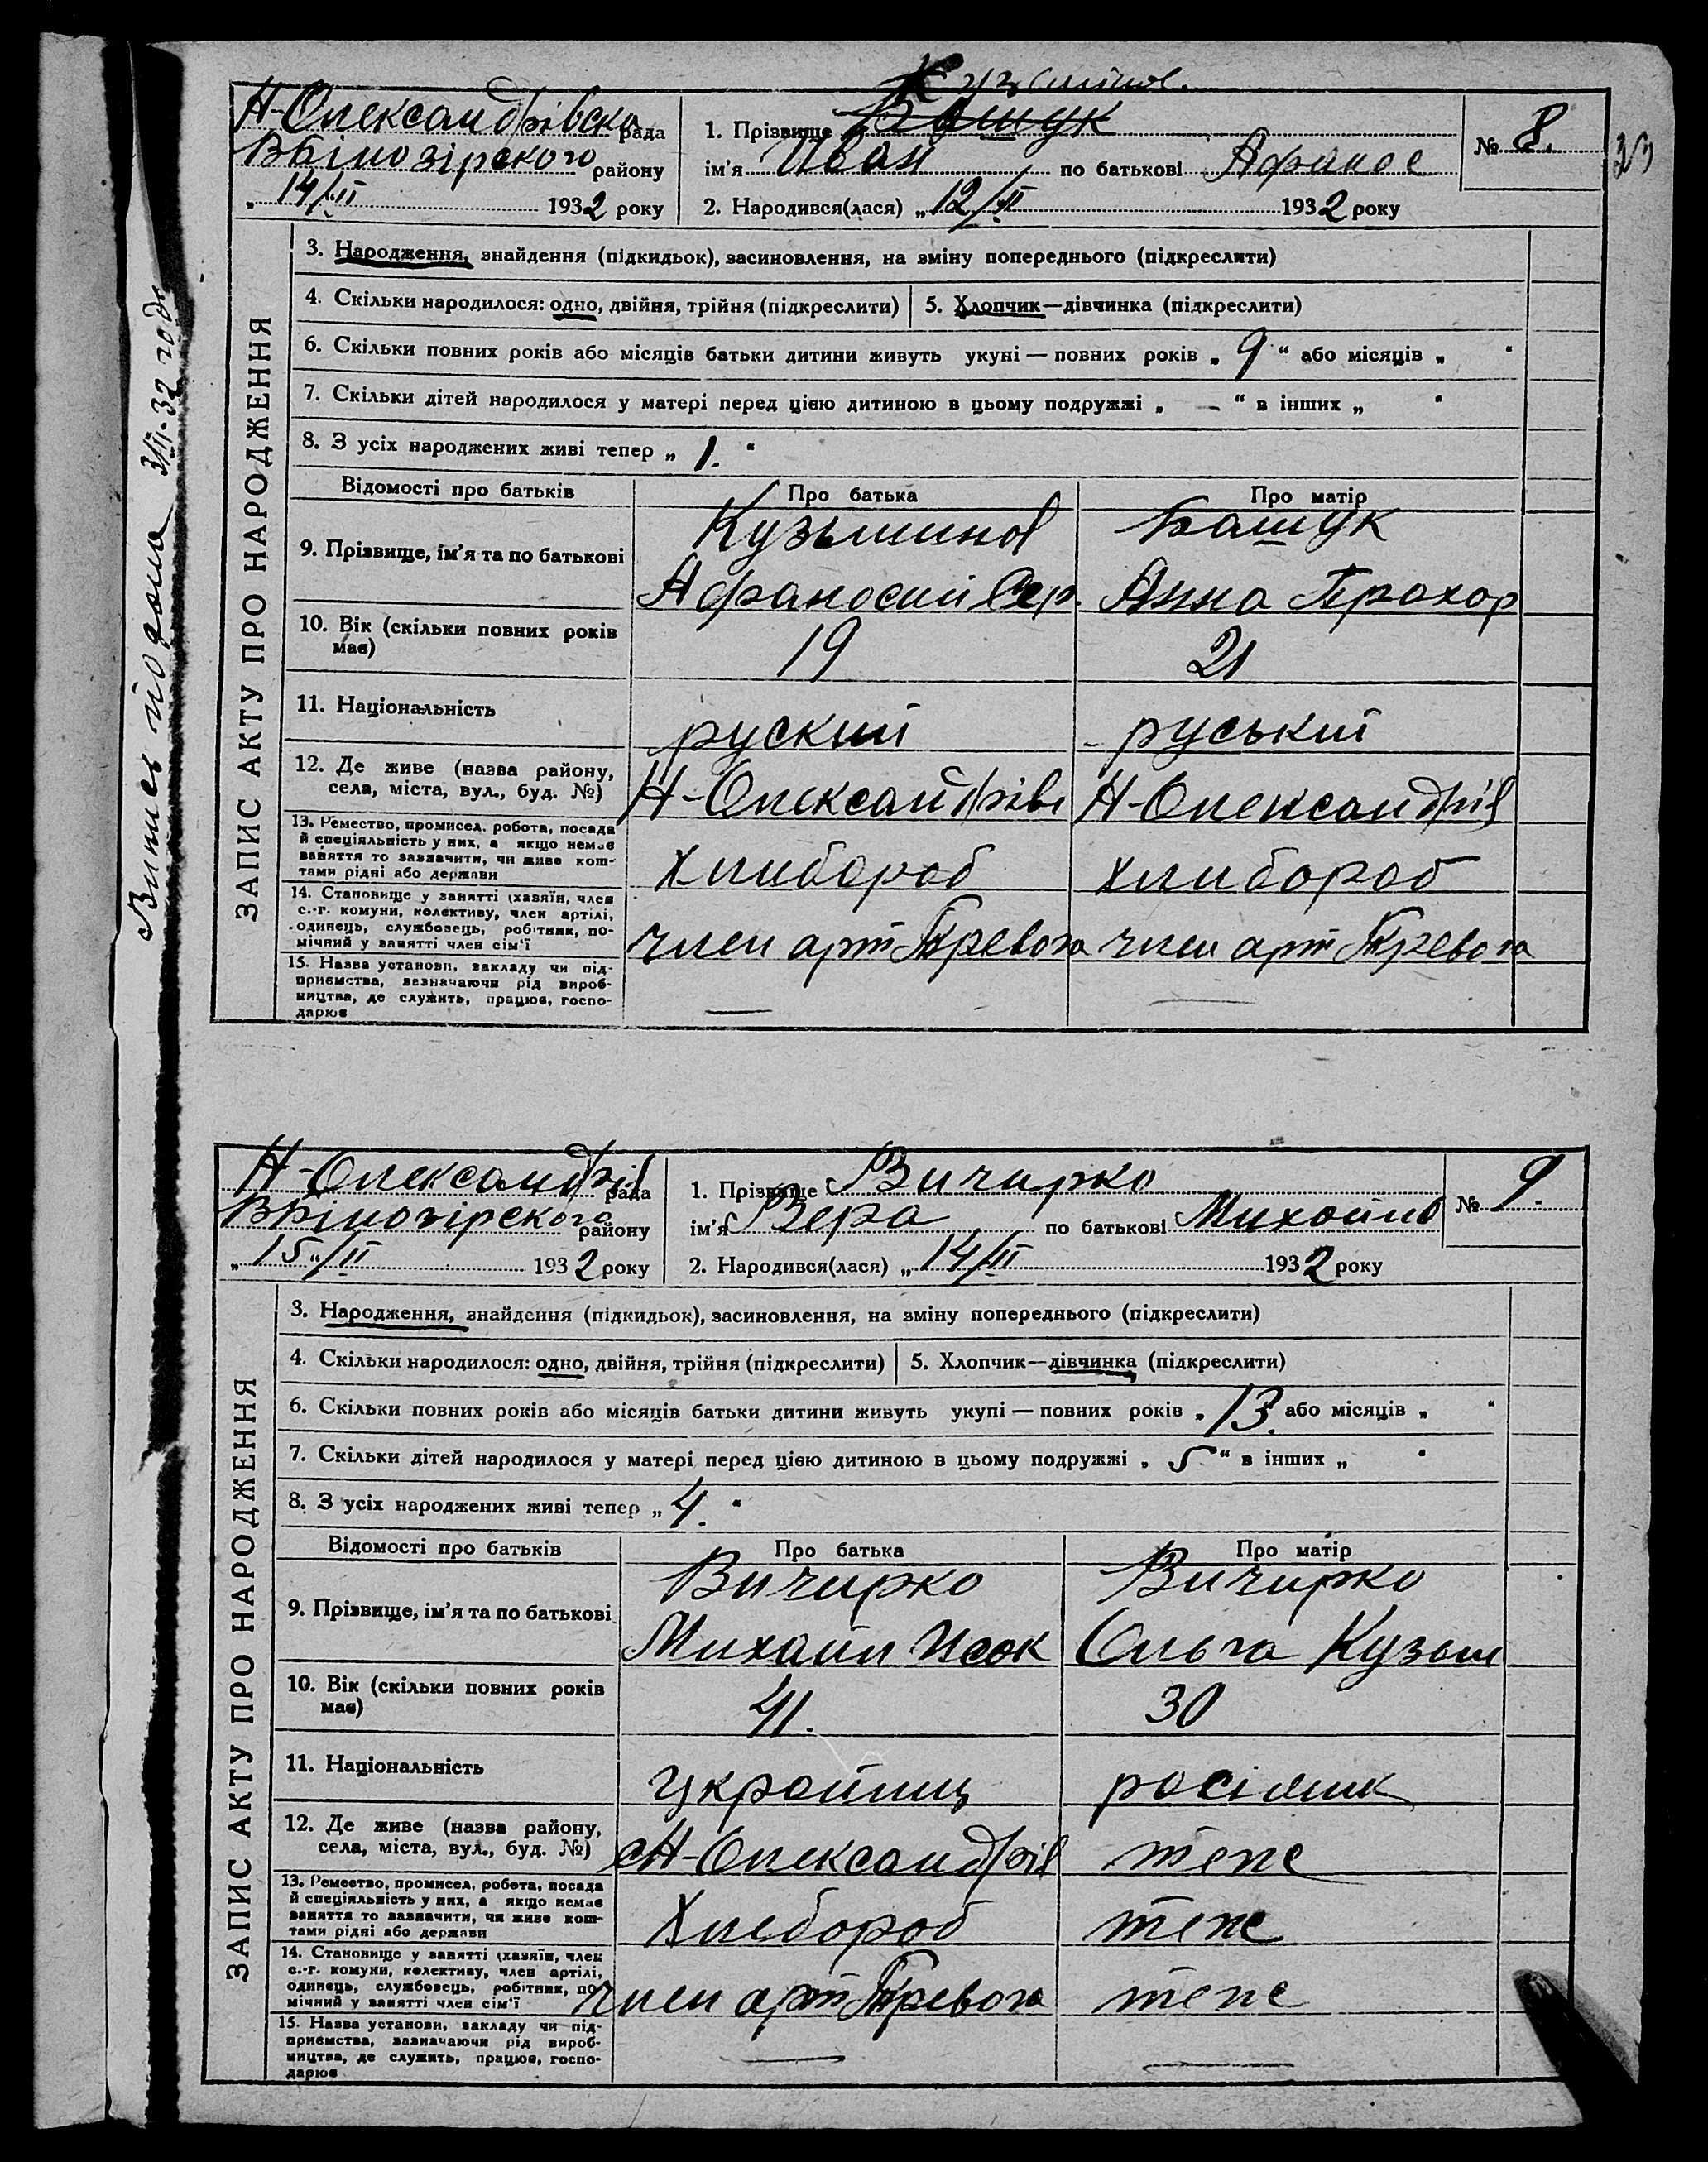 Кузьминов.
Н-Олександрівска рада
Вбілозірского району
„14/II 1932 року
1. Прізвище Башук
ім'я Иван по батькові Афанас
2. Народився(лася) „12/II 1932 року
№ 8.
33
3. Народження, знайдення (підкидьок), засиновлення, на зміну попереднього (підкреслити)
4. Скільки народилося: одно, двійня, трійня (підкреслити)
5. Хлопчик—дівчинка (підкреслити)
6. Скільки повних років або місяців батьки дитини живуть укупі — повних років „ 9 “ або місяців „ “
7. Скільки дітей народилося у матері перед цією дитиною в цьому подружжі „ — “ в інших „ “
8. З усіх народжених живі тепер „ 1. “
ЗАПИС АКТУ ПРО НАРОДЖЕННЯ
Відомості про батьків Про батька Про матір
9. Прізвище, ім'я та по батькові
Кузьминов Башук
Афаносий Анна Прохор
10. Вік (скільки повних років має)
19 21
11. Національність
руский руський
12. Де живе (назва району,
села, міста, вул., буд. №)
Н-Олександрівс Н-Олександрів
13. Ремество, промисел, робота, посада
й спеціяльність у них, а якщо немає
заняття то зазначити, чи живе кош-
тами рідні або держави
Хлибороб хлибороб
14. Становище у занятті (хазяїн, член
с.-г. комуни, колективу, член артілі,
одинець, службовець, робітник, по-
мічний у занятті член сім'ї
член арт Тревога член арт Тревога
15. Назва установи, закладу чи під-
приємства, зазначаючи рід вироб-
ництва, де служить, працює, госпо-
дарює
— —
Н-Олександрів рада
Вбілозірского району
„15“/II 1932 року
1. Прізвище Вичирко
ім'я Вера по батькові Михайлов
2. Народився(лася) „14/II 1932 року
№ 9.
3. Народження, знайдення (підкидьок), засиновлення, на зміну попереднього (підкреслити)
4. Скільки народилося: одно, двійня, трійня (підкреслити)
5. Хлопчик—дівчинка (підкреслити)
6. Скільки повних років або місяців батьки дитини живуть укупі — повних років „ 13. або місяців „ “
7. Скільки дітей народилося у матері перед цією дитиною в цьому подружжі „ 5 “ в інших „ “
8. З усіх народжених живі тепер „ 4. “
ЗАПИС АКТУ ПРО НАРОДЖЕННЯ
Відомості про батьків Про батька Про матір
9. Прізвище, ім'я та по батькові
Вичирко Вичирко
Михаил Исак Ольга Кузьм
10. Вік (скільки повних років має)
41. 30
11. Національність
украйниц росіяник
12. Де живе (назва району,
села, міста, вул., буд. №)
сН-Олександрів теже
13. Ремество, промисел, робота, посада
й спеціяльність у них, а якщо немає
заняття то зазначити, чи живе кош-
тами рідні або держави
Хлебороб теже
14. Становище у занятті (хазяїн, член
с.-г. комуни, колективу, член артілі,
одинець, службовець, робітник, по-
мічний у занятті член сім'ї
член арт Тревога теже
15. Назва установи, закладу чи під-
приємства, зазначаючи рід вироб-
ництва, де служить, працює, госпо-
дарює
— —